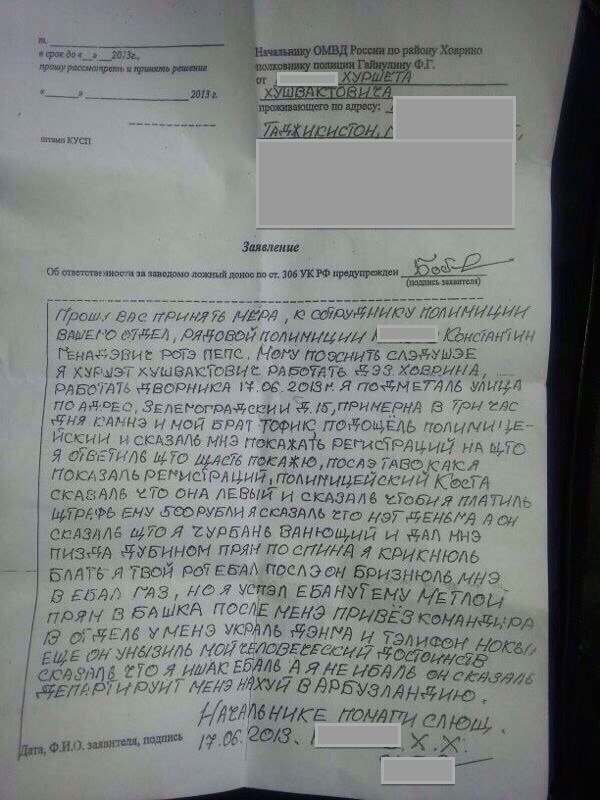 т.
в срок до «__» 2013г.,
прошу рассмотреть и принять решение
«______» ____________ 2013 г.
штамп КУСП
Начальнику ОМВД России по району Ховрино
полковнику полиции Гайнулину Ф.Г.
от ХУРШЕТА
ХУШВАКТОВИЧА
проживающего по адресу:
ТАДЖИКИСТОН,
Заявление
Об ответственности за заведомо ложный донос по ст. 306 УК РФ предупрежден
(подпись заявителя)
ПРОШУ ВАС ПРИНЯТЬ МЕРА, К СОТРУДНИКУ ПОЛИМИЦИИ
ВАШЕГО ОТДЕЛ, РЯДОВОЙ ПОЛИМИЦИИ КОНСТАНТИН
ГЕНАДЭВИЧ РОТЭ ПЕПС. МОМУ ПОЯСНИТЬ СЛЭДУШЭЕ
Я ХУРШЭТ ХУШВАКТОВИЧ РАБОТАТЬ ДЭЗ ХОВРИНА,
РАБОТАТЬ ДВОРНИКА 17.06.2013м. Я ПОДМЕТАЛЬ УЛИЦА
ПО АДРЕС, ЗЕЛЕНОГРАДСКИЙ Д.15, ПРИМЕРНА В ТРИ ЧАС
ДНЯ КАМНЭ И МОЙ БРАТ ТОФИК ПОДОЩЁЛЬ ПОЛИМИЦЕ-
ЙСКИЙ И СКАЗАЛЬ МНЭ ПОКАЖАТЬ РЕГИСТРАЦИЙ НА ЩТО
Я ОТВЕТИЛЬ ЩТО ЩАСТЬ ПОКАЖЮ, ПОСЛЭ ТАВО КАК Я
ПОКАЗАЛЬ РЕГИСТРАЦИЙ, ПОЛИМИЦЕЙСКИЙ КОСТА
СКАЗАЛЬ ЧТО ОНА ЛЕВЫЙ И СКАЗАЛЬ ЧТОБИ Я ПЛАТИЛЬ
ЩТРАФЬ ЕМУ 500 РУБЛИ Я СКАЗАЛЬ ЧТО НЭТ ДЕНЬГА А ОН
СКАЗАЛЬ ЩТО Я ЧУРБАНЬ ВАНЮЩИЙ И ДАЛ МНЭ
ПИЗДА ДУБИНОМ ПРЯМ ПО СПИНА Я КРИКНЮЛЬ
БЛАТЬ Я ТВОЙ РОТ ЕБАЛ ПОСЛЭ ОН БРИЗНЮЛЬ МНЭ
В ЕБАЛ ГАЗ, НО Я УСПЭЛ ЕБАНУТ ЕМУ МЕТЛОЙ
ПРЯМ В БАШКА ПОСЛЕ МЕНЭ ПРИВЁЗ КОМАНДИРА
В ОТДЕЛЬ У МЕНЭ УКРАЛЬ ДЭНГА И ТЭЛИФОН НОКЫ
ЕЩЕ ОН УНЫЗИЛЬ МОЙ ЧЕЛОВЕЧЕСКИЙ ДОСТОИНСТВ
СКАЗАЛЬ ЧТО Я ИШАК ЕБАЛЬ А Я НЕ ИБАЛЬ ОН СКАЗАЛЬ
ДЕПАРТИРУИТ МЕНЭ НАХУЙ В АРБУЗЛАНДИЮ.
НАЧАЛЬНИКЕ ПОМАГИ СЛЮЩ.
Дата, Ф.И.О. заявителя, подпись
17.06.2013. Х.Х.